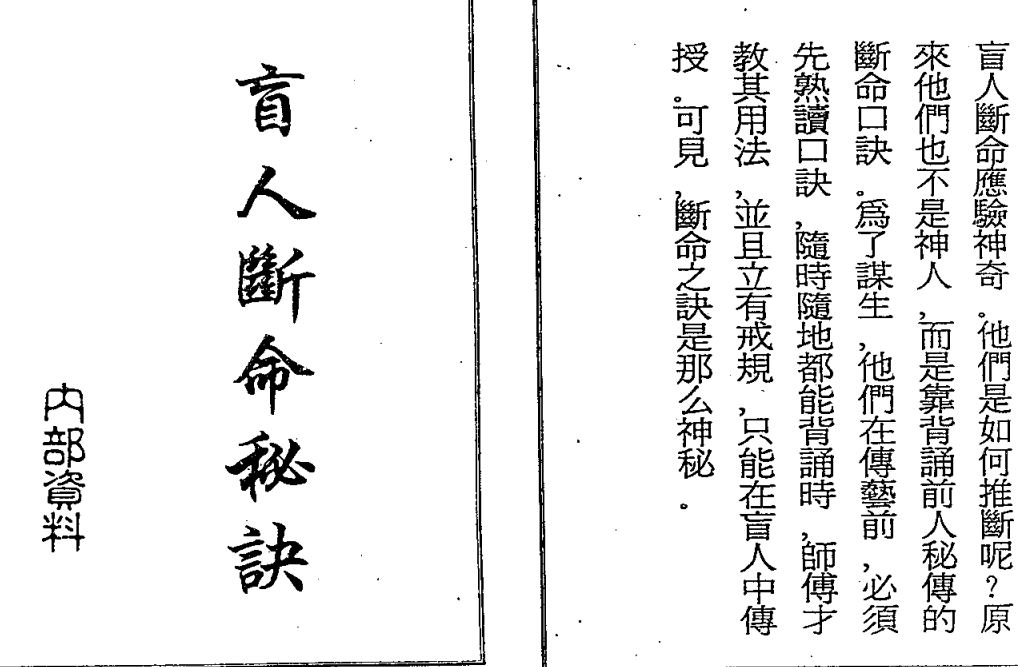 盲人斷命應驗神奇。他們是如何推斷呢？原
來他們也不是神人，而是靠背誦前人秘傳的
斷命口訣。爲了謀生，他們在傳藝前，必須
先熟讀口訣，隨時隨地都能背誦時，師傅才
教其用法，並且立有戒規，只能在盲人中傳
授。可見，斷命之訣是那么神秘．
盲人斷命秘訣
内部資料